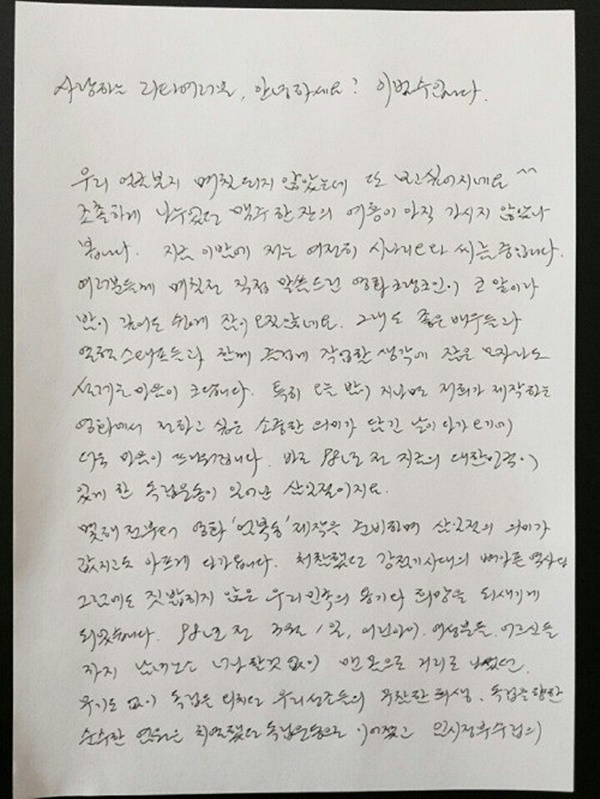 사랑하는 리타여러분, 안녕하세요? 이범수입니다.
우리 얼굴본지 며칠되지 않았는데 또 보고싶어지네요^^
조촐하게 나누었던 맥주 한 잔의 여흥이 아직 가시지 않았나
봅니다. 지금 이밤에 저는 여전히 시나리오와 씨름중입니다.
여러분들께 며칠전 직접 말씀드린 영화 크랭크인이 코 앞이라
밤이 깊어도 쉽게 잠이 오질않네요. 그래도 좋은 배우들과
스태프들과 함께 즐겁게 작업할 생각에 잠은 모자라도
설레는 마음이 크답니다. 특히 오늘 밤이 지나면 저희가 제작하는
영화에서 전하고 싶은 소중한 의미가 담긴 날이 다가오기에
더욱 마음이 뜨거워집니다. 바로 98년 전 지금의 대한민국이
있게 한 독립운동이 일어난 삼일절이지요.
몇해 전부터 영화 '엄복동' 제작을 준비하며 삼일절의 의미가
값지고도 아프게 다가옵니다. 처참했던 강점기시대의 뼈아픈 역사와
그럼에도 짓밟히지 않은 우리민족의 용기와 희망을 되새기게
되었습니다. 98년 전 3월 1일, 어린아이, 여성분들, 어르신들
까지 남녀노소 너나할것 없이 맨 몸으로 거리로 나섰던,
무기도 없이 독립을 외치던 우리선조들의 위한 희생, 독립을 향한
순수한 염원은 치열했던 독립운동으로 이어졌고 임시정부수립의